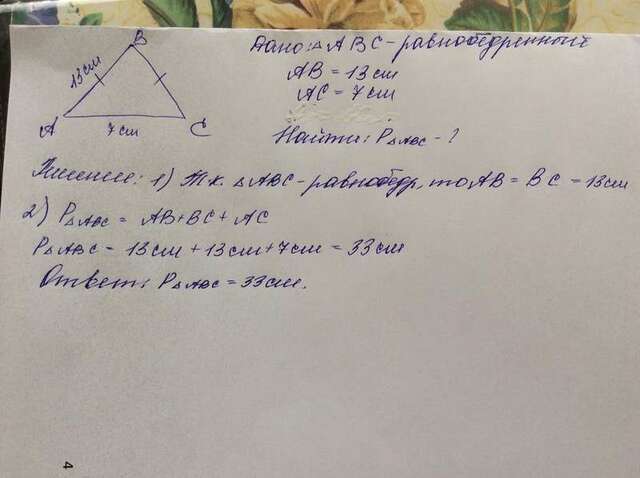 B
13см
A
7см
C
Дано: △ ABC - равнобедренный
AB = 13см
AC = 7см
Найти: P△ABC - ?
Решение: 1) Т.к. △ABC - равнобедр, то AB = BC = 13см
2) P△ABC = AB + BC + AC
P△ABC = 13см + 13см + 7см = 33см
Ответ: P△ABC = 33см.
4